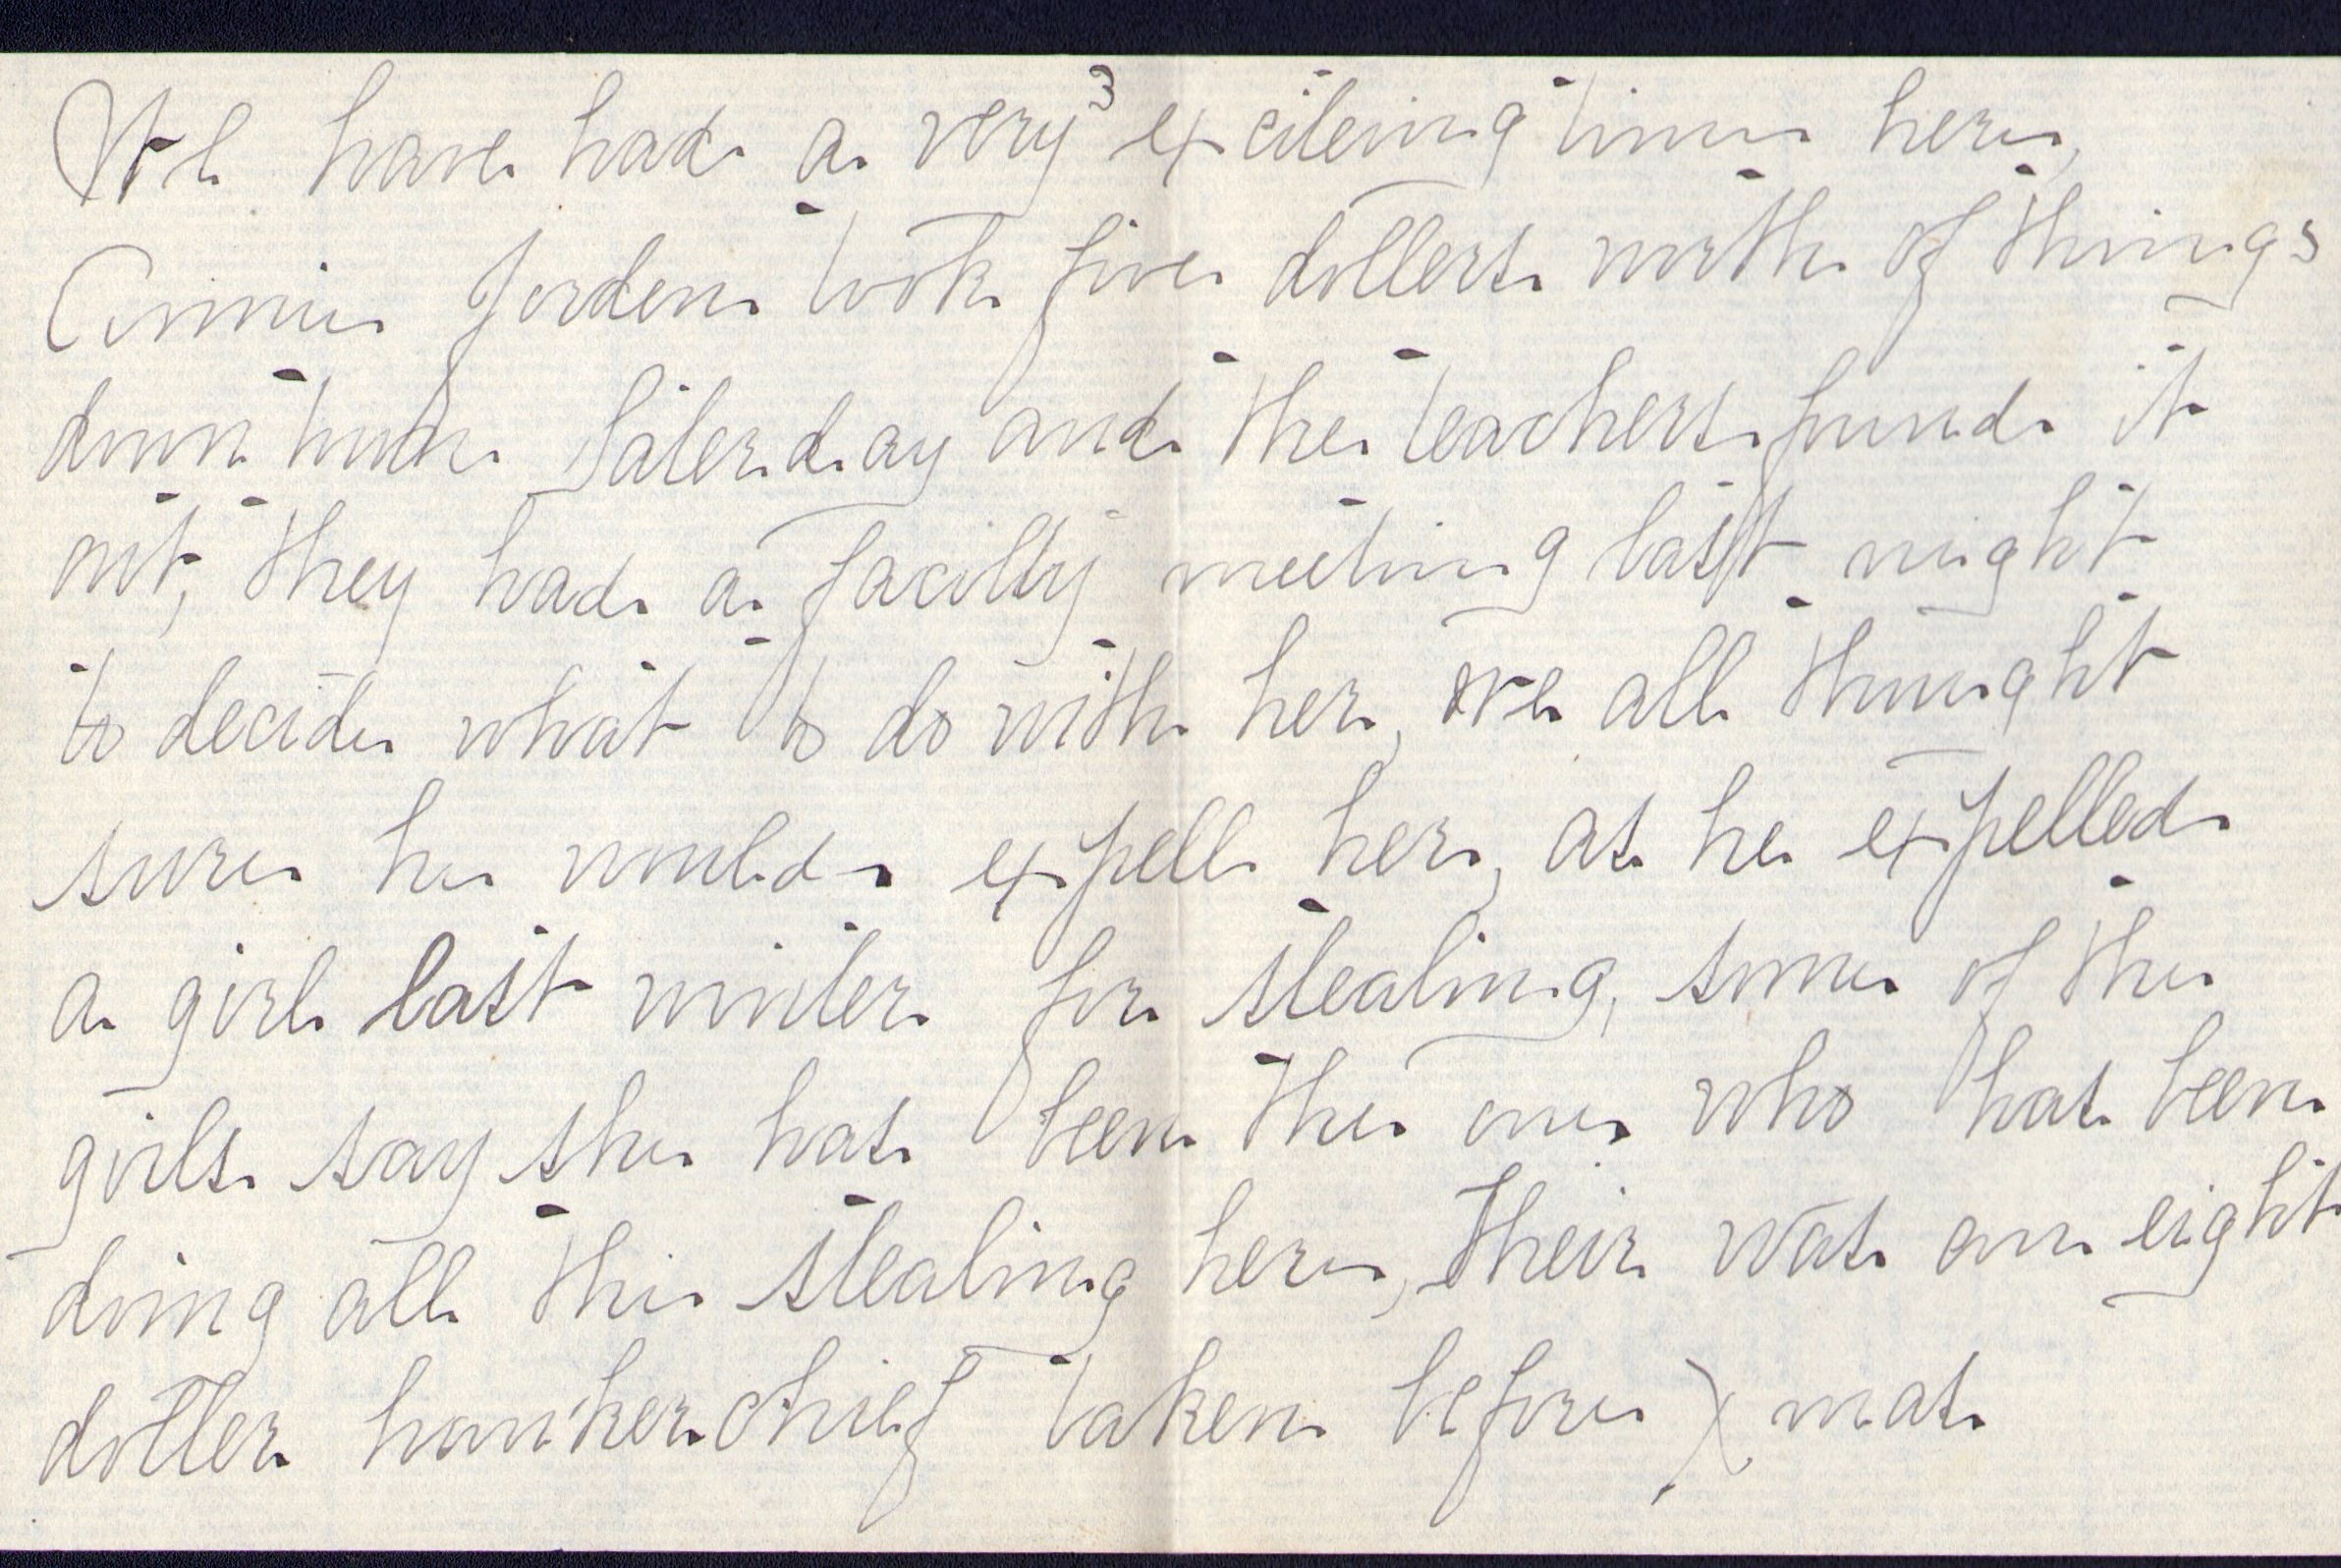 3
We have had a very exciteing time here,
Connie Jorden took five dollers worth of things
down town Saterday and the teachers found it
out, they had a facilty meeting last night
to decide what to do with her, we all thought
sure he would expell her, as he expelled
a girl last winter for stealing, some of the
girls say she has been the one who has been
doing all this stealing here, their was an eight
doller hankerchief taken before Xmas